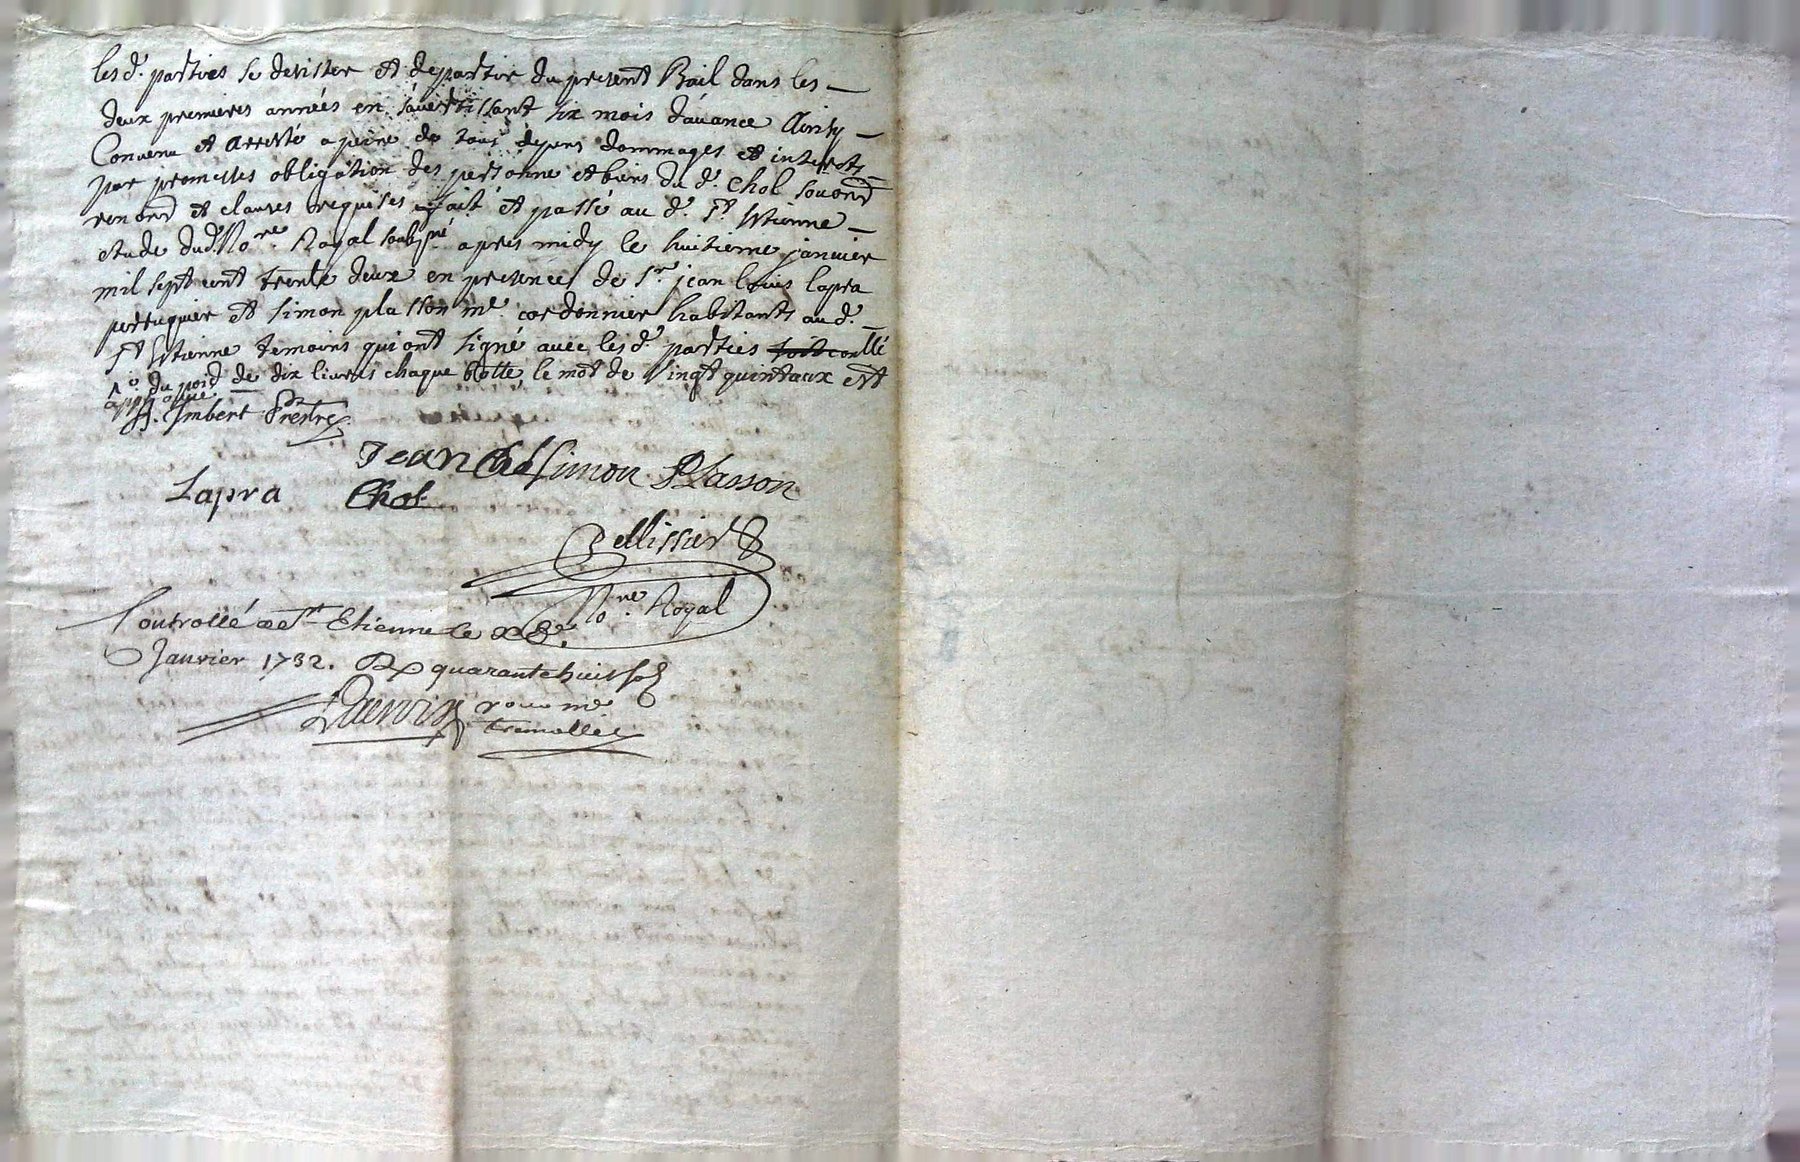 lesd. parties se desister et departir du present Bail dans les
deux premieres années en s'avertissant six mois d'avance Ainsy
Convenu et arresté a peine de tous depens dommages et interests
par promesses obligation des personne et biens dud. Chol soum.on
renon.on et clauses requises fait et passé aud. St Estienne
etude dud. No.re Royal soubz.né apres midy le huitieme janvier
mil sept cent trente deux en presences de Sr. jean Louis Lapra
perruquier et simon plasson me cordonnier habitants aud.
St Estienne temoins qui ont signé avec lesd. parties
du poid de dix livres chaque botte, le mot de vingt quintaux est
approuvé
Imbert Prestre
Jean Chol Simon Plasson
Lapra Chol
Pellissier
No.re Royal
Controllé a St. Etienne le
Janvier 1732. Rx quarante huit sols